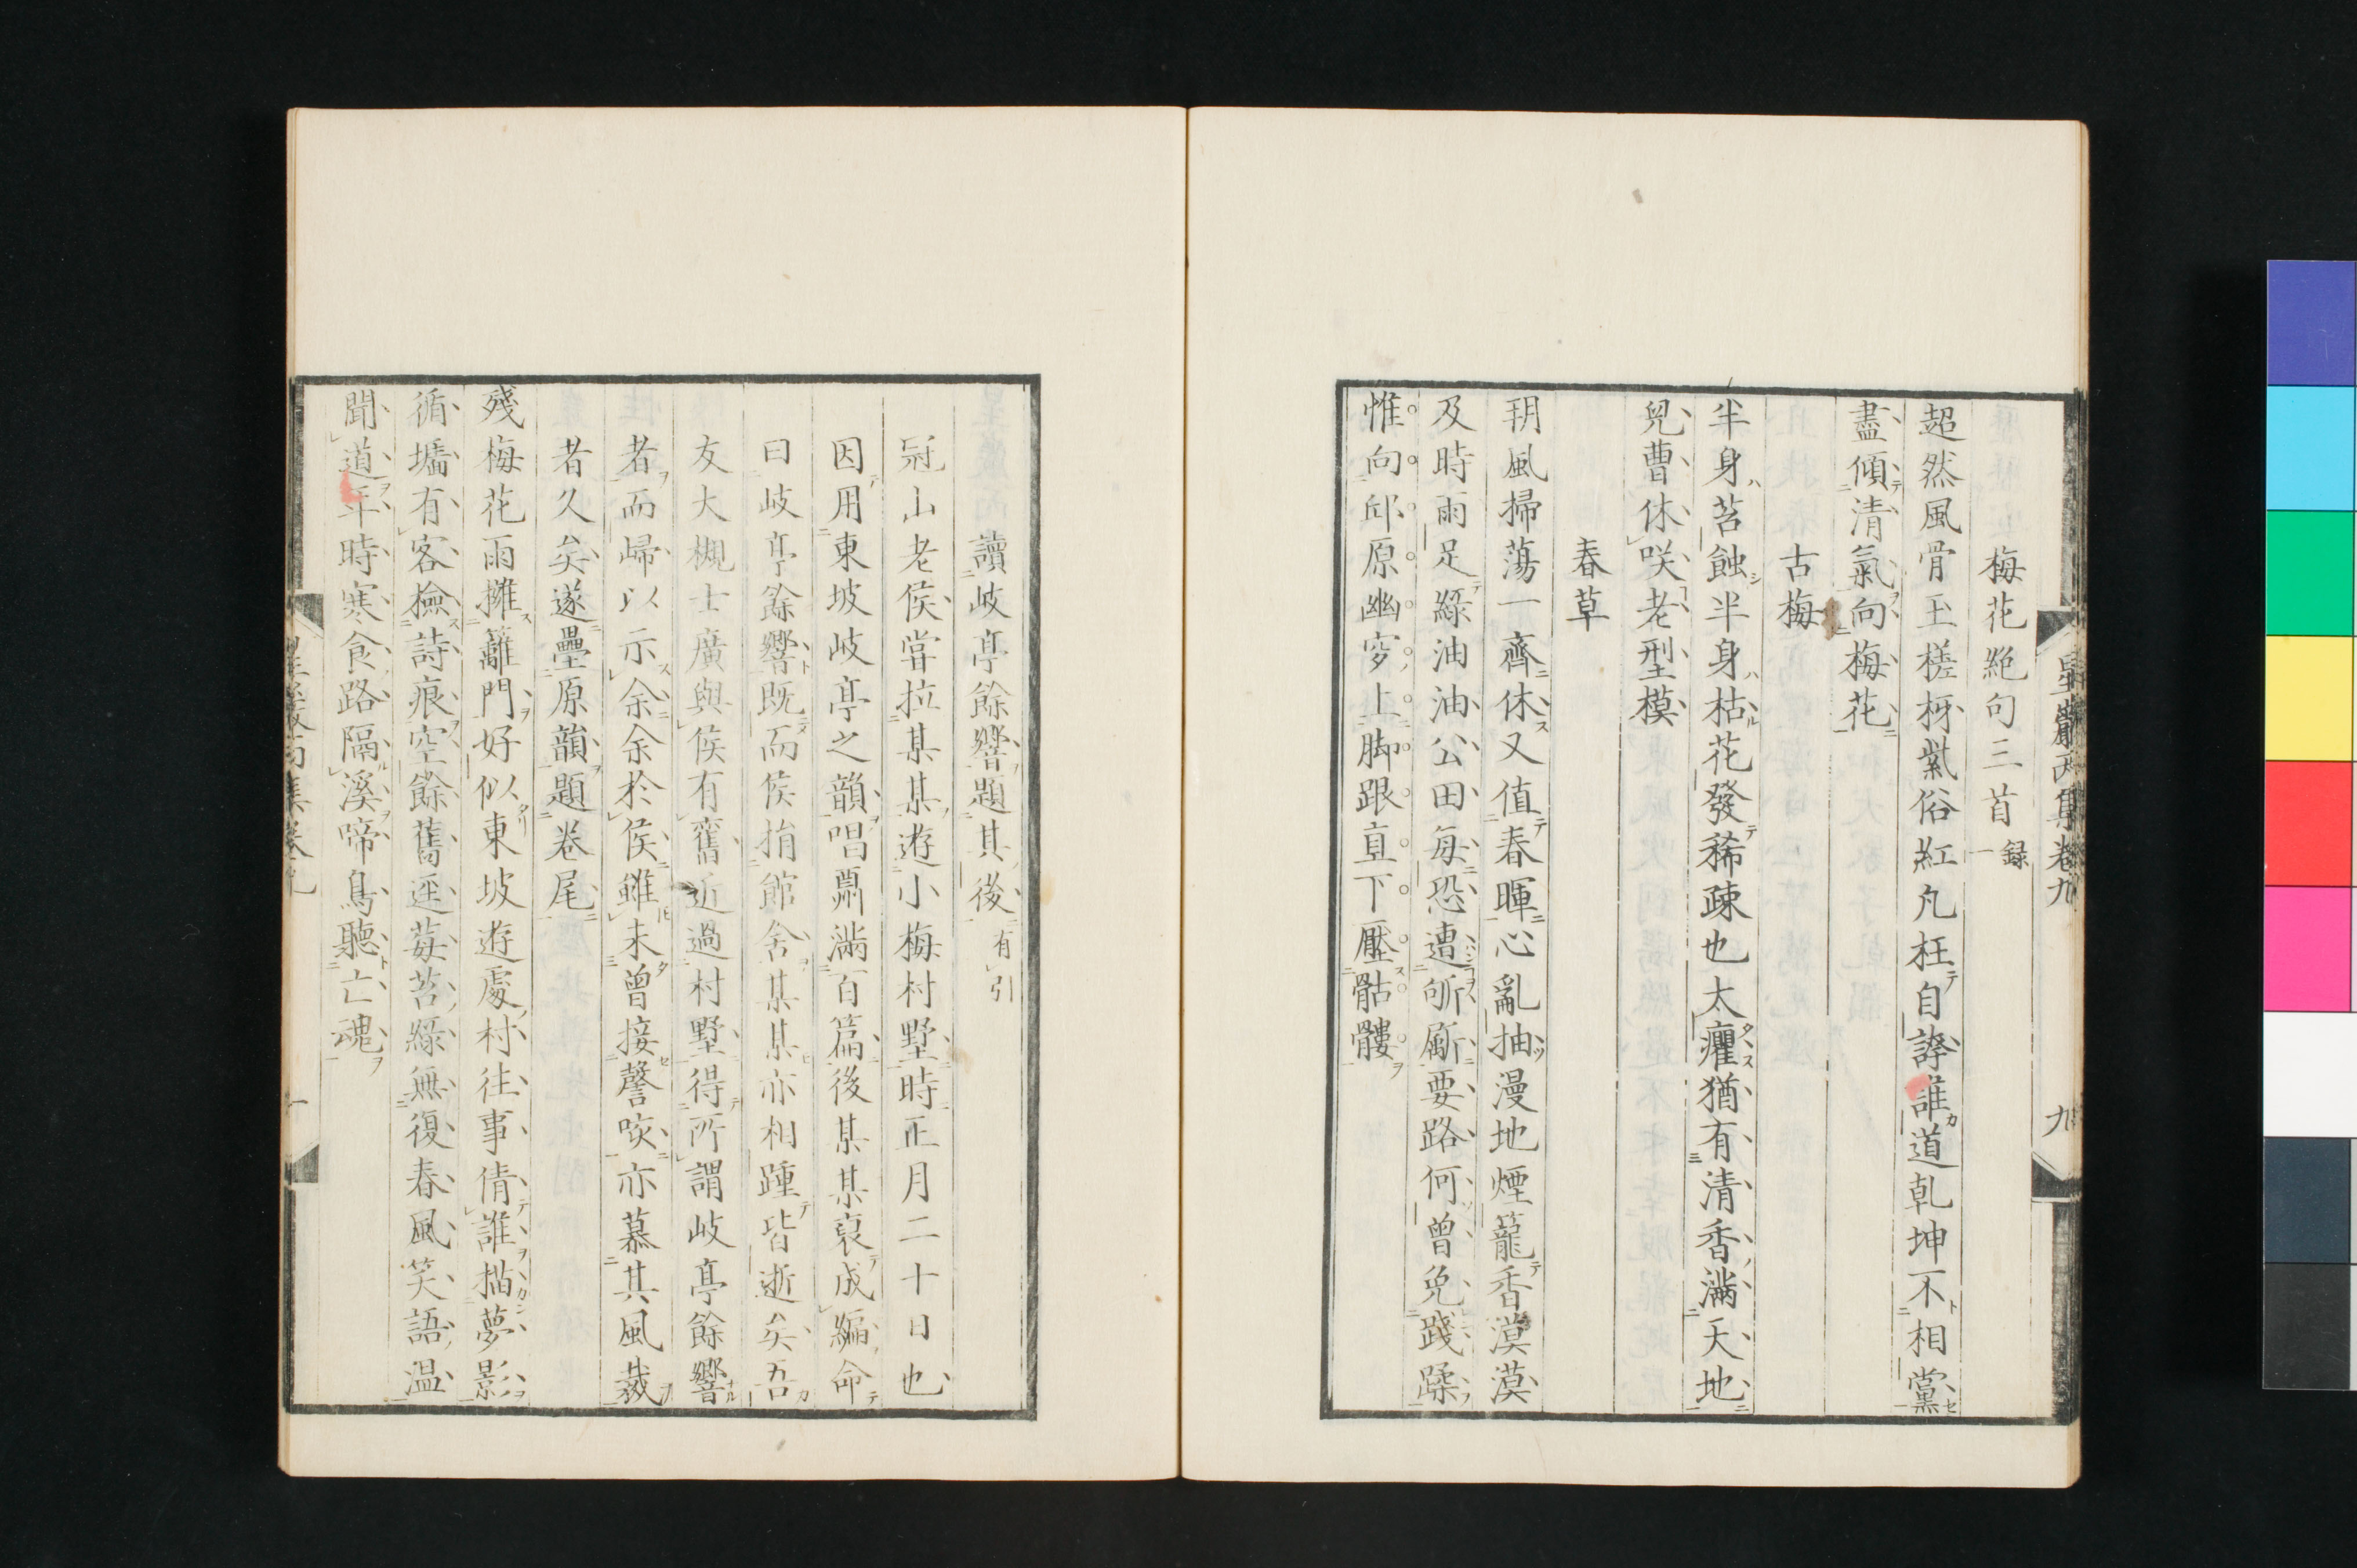 星巖丙集卷九
九
梅花絶句三首 錄一
超然風骨玉槎枒紫俗紅凡枉自誇誰道乾坤不相黨
盡傾清氣向梅花
古梅
半身苔蝕半身枯花發稀疎也太癯猶有清香滿天地
兒曹休咲老型模
春草
明風掃蕩一齊休又值春暉心亂抽漫地煙籠香漠漠
及時雨足綠油油公田每恐遭斫㔉要路何曾免踐蹂
惟向邱原幽穸上脚跟直下壓骷髏
讀岐亭餘響題其後 有引
冠山老侯嘗拉某某遊小梅村墅時正月二十日也
因用東坡岐亭之韻唱酬滿百篇後某某裒成編命
曰岐亭餘響既而侯捐館舍某某亦相踵皆逝矣吾
友大槻士廣與侯有舊近過村墅得所謂岐亭餘響
者而歸以示余余於侯雖未曾接謦咳亦慕其風裁
者久矣遂疊原韻題卷尾
殘梅花雨擁籬門好似東坡遊處村往事倩誰描夢影
循墻有客檢詩痕空餘舊逕莓苔綠無復春風笑語溫
聞道年時寒食路隔溪啼鳥聽亡魂